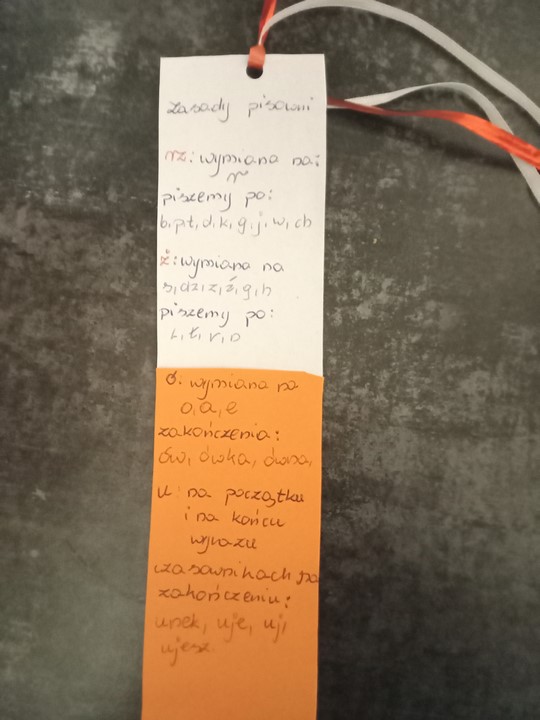 zasady pisowni
rz: wymiana na:
r
piszemy po:
b, p, t, d, k, g, j, w, ch
ż: wymiana na
s, dz, z, ź, g, h
piszemy po:
L, ł, r, n
ó: wymiana na
o, a, e
zakończenia:
ów, ówka, ówna,
u na początku
i na końcu
wyrazu
czasownikach po
zakończeniu:
unek, uje, uj,
ujesz